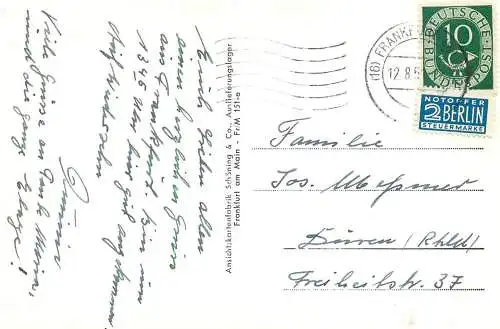 Euch Lieben allen
einen herzlichen Gruss
aus Frankfurt. Bin um
1345 Uhr hier gut angekommen.
Auf Wiedersehn
Günter
Viele Grüsse an Tante Maria,
und die ganze Etage!
Ansichtskartenfabrik Schöning & Co., Auslieferungslager
Frankfurt am Main - Fr/M 151-a
(16) FRANKF
12.8.5
DEUTSCHE
BUNDESPOST
10
NOTOPFER
2 BERLIN
STEUERMARKE
Familie
Jos. Messmer
Düren / (Rhld)
Freiheitstr. 37